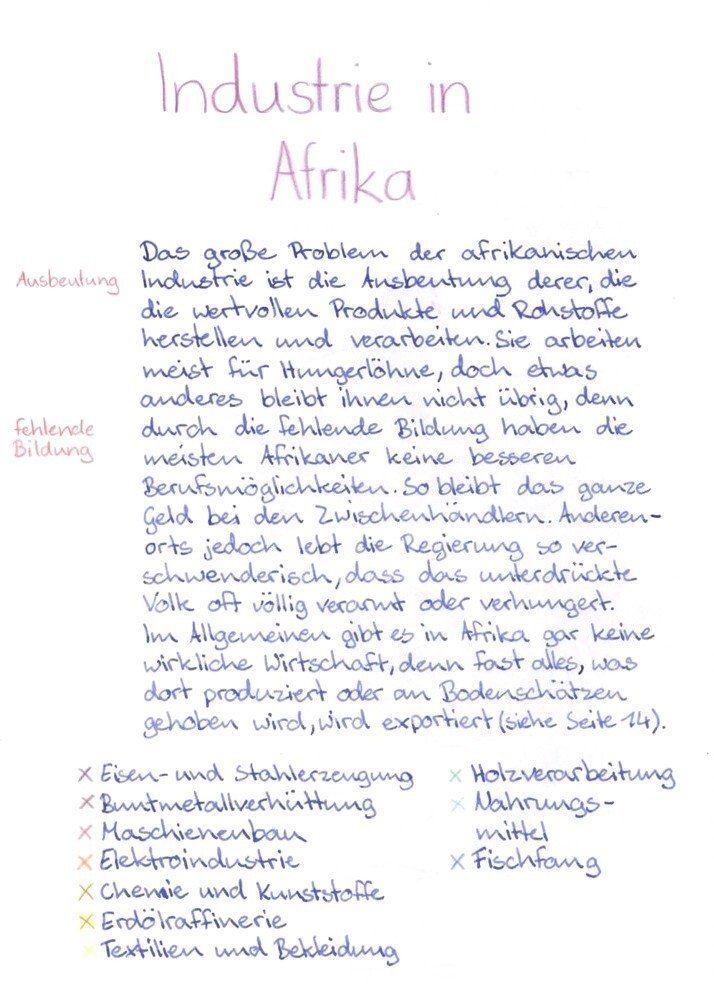 Industrie in
Afrika
Das große Problem der afrikanischen
Ausbeutung
Industrie ist die Ausbeutung derer, die
die wertvollen Produkte und Rohstoffe
herstellen und verarbeiten. Sie arbeiten
meist für Hungerlöhne, doch etwas
anderes bleibt ihnen nicht übrig, denn
fehlende
Bildung
durch die fehlende Bildung haben die
meisten Afrikaner keine besseren
Berufsmöglichkeiten. So bleibt das ganze
Geld bei den Zwischenhändlern. Anderen-
orts jedoch lebt die Regierung so ver-
schwenderisch, dass das unterdrückte
Volk oft völlig verarmt oder verhungert.
Im Allgemeinen gibt es in Afrika gar keine
wirkliche Wirtschaft, denn fast alles, was
dort produziert oder an Bodenschätzen
gehoben wird, wird exportiert (siehe Seite 14).
x Eisen- und Stahlerzeugung
x Buntmetallverhüttung
x Maschienenbau
x Elektroindustrie
x Chemie und Kunststoffe
x Erdölraffinerie
x Textilien und Bekleidung
x Holzverarbeitung
x Nahrungs-
mittel
x Fischfang